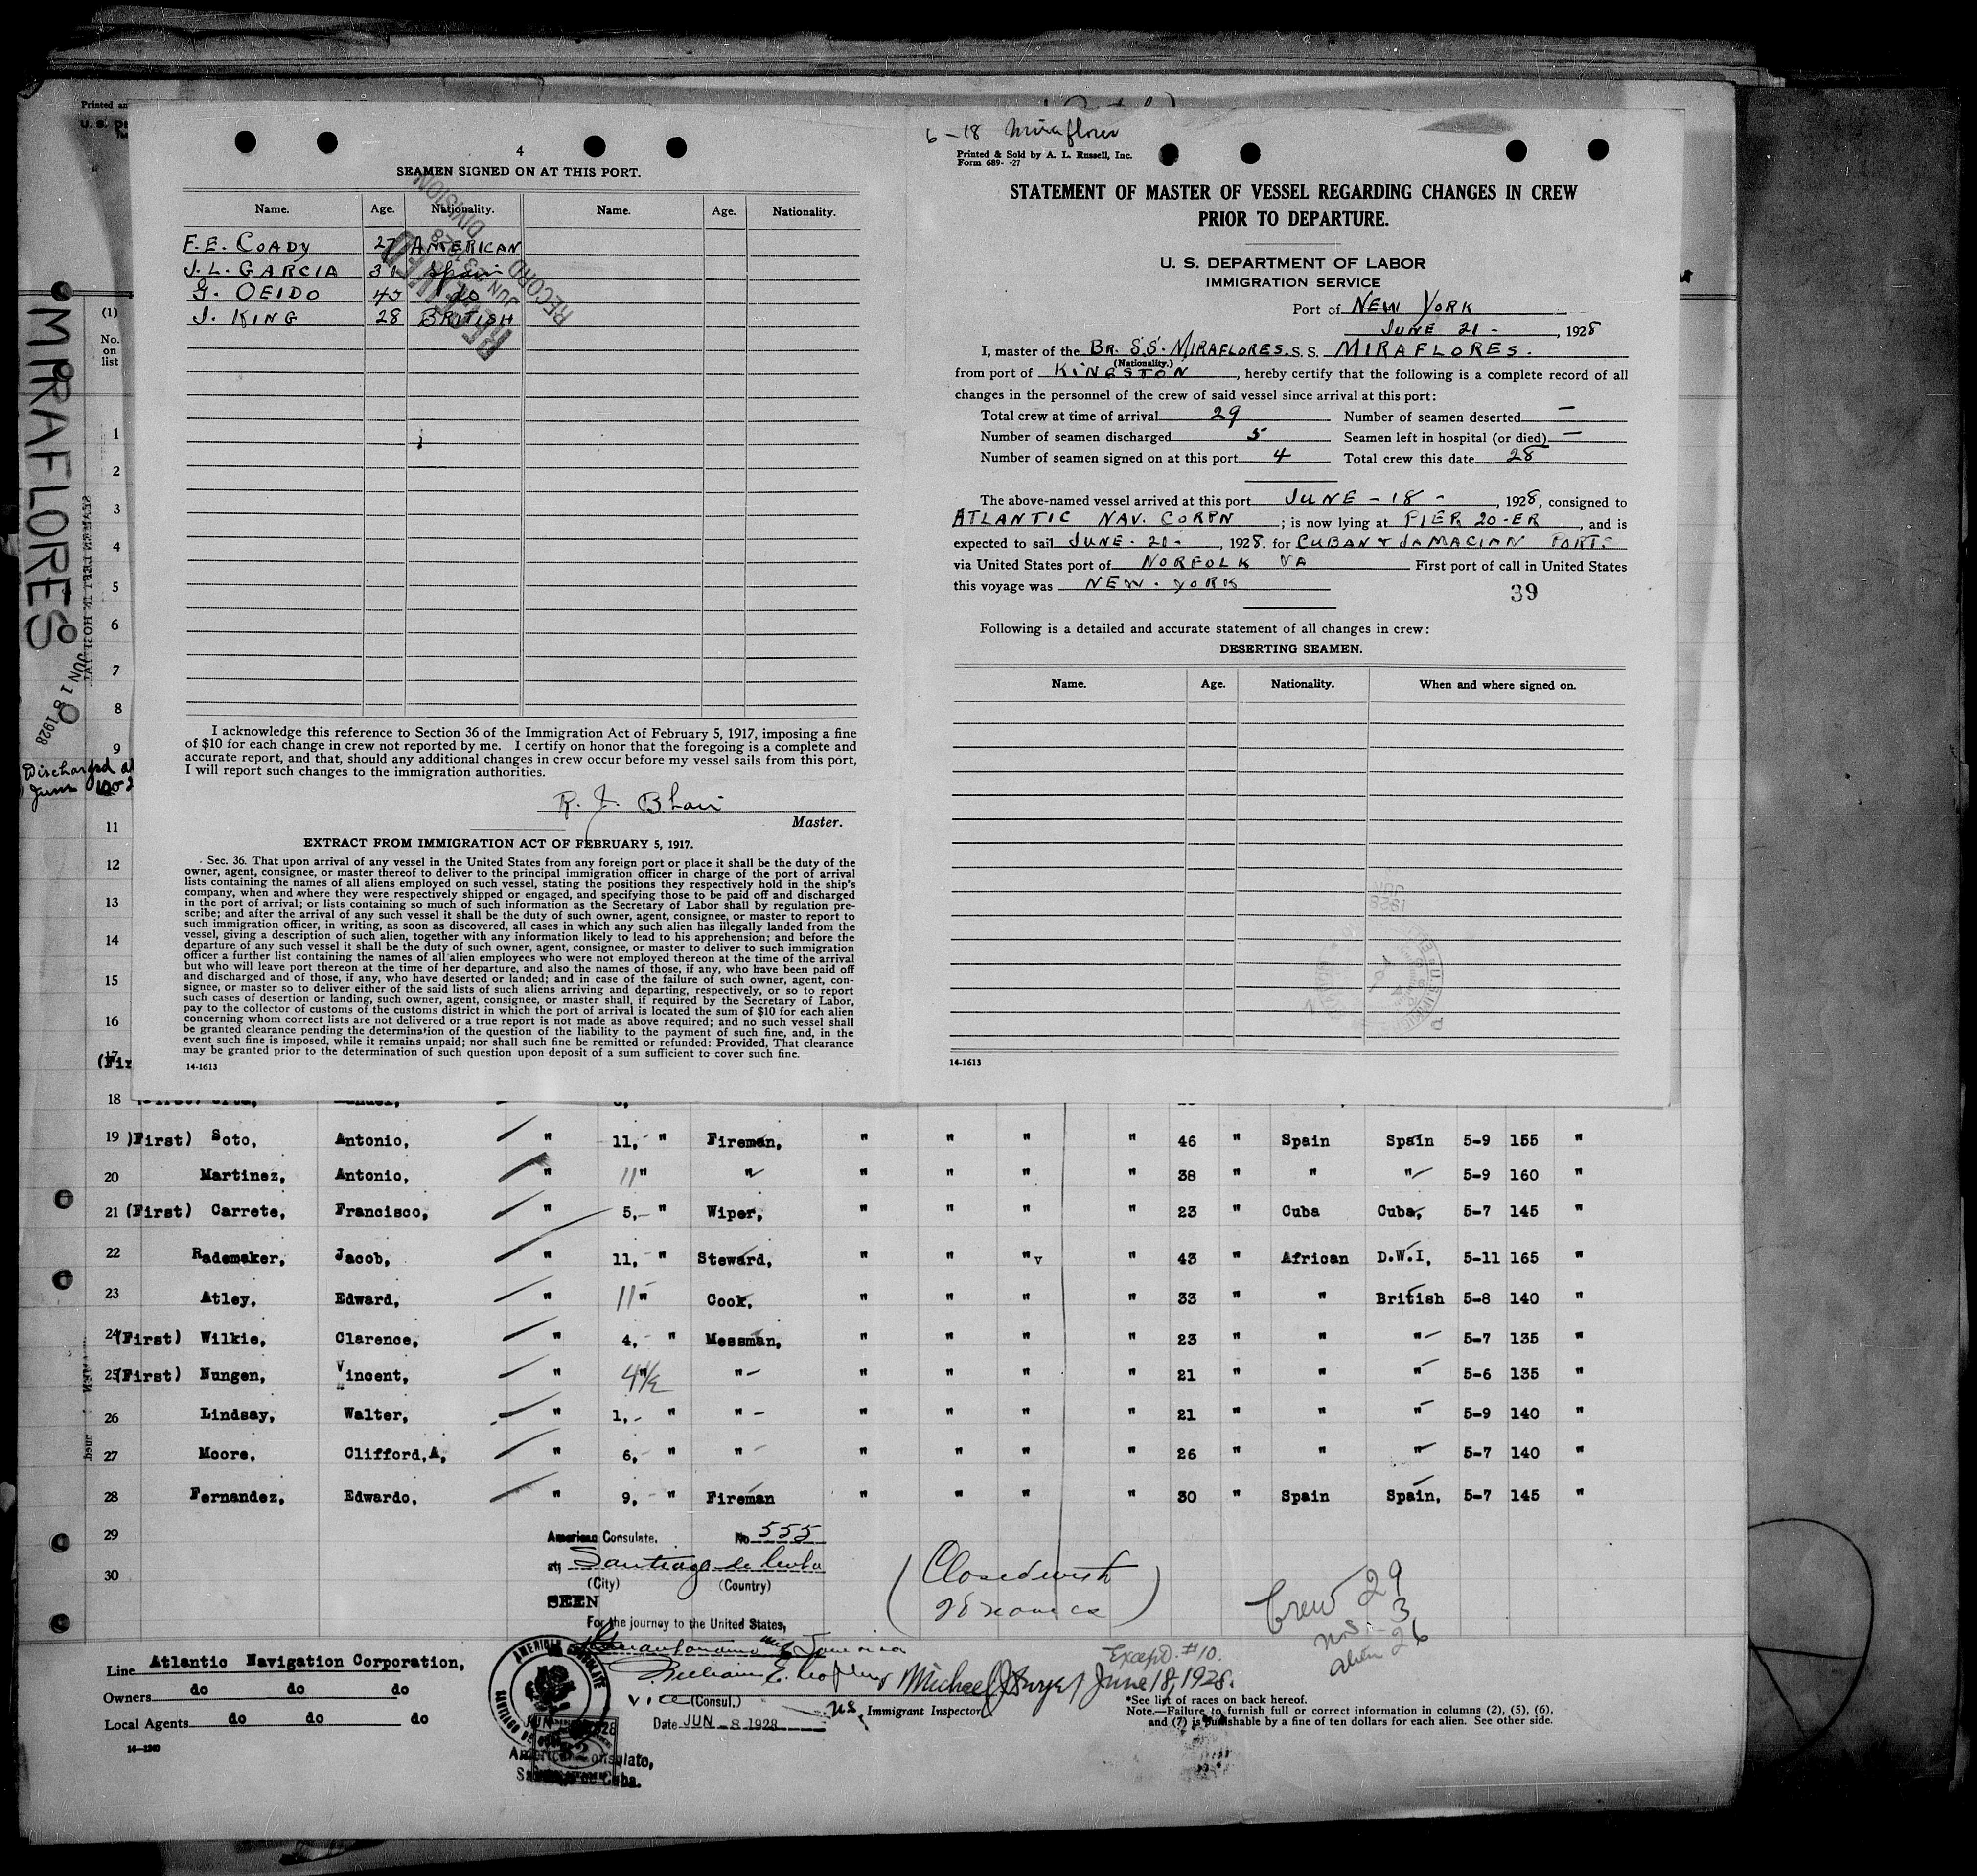 Printed an
U. S. D
6-18 Miraflores
4
SEAMEN SIGNED ON AT THIS PORT.
Name. Age. Nationality. Name. Age. Nationality.
F.E. COADY 27 AMERICAN
J.L. GARCIA 31 Spain
G. OEIDO 45 do
J. KING 28 BRITISH
RECEIVED
JUN 23 1928
RECORD DIVISION
I acknowledge this reference to Section 36 of the Immigration Act of February 5, 1917, imposing a fine
of $10 for each change in crew not reported by me. I certify on honor that the foregoing is a complete and
accurate report, and that, should any additional changes in crew occur before my vessel sails from this port,
I will report such changes to the immigration authorities.
R. J. Blair
Master.
EXTRACT FROM IMMIGRATION ACT OF FEBRUARY 5, 1917.
Sec. 36. That upon arrival of any vessel in the United States from any foreign port or place it shall be the duty of the
owner, agent, consignee, or master thereof to deliver to the principal immigration officer in charge of the port of arrival
lists containing the names of all aliens employed on such vessel, stating the positions they respectively hold in the ship's
company, when and where they were respectively shipped or engaged, and specifying those to be paid off and discharged
in the port of arrival; or lists containing so much of such information as the Secretary of Labor shall by regulation pre-
scribe; and after the arrival of any such vessel it shall be the duty of such owner, agent, consignee, or master to report to
such immigration officer, in writing, as soon as discovered, all cases in which any such alien has illegally landed from the
vessel, giving a description of such alien, together with any information likely to lead to his apprehension; and before the
departure of any such vessel it shall be the duty of such owner, agent, consignee, or master to deliver to such immigration
officer a further list containing the names of all alien employees who were not employed thereon at the time of the arrival
but who will leave port thereon at the time of her departure, and also the names of those, if any, who have been paid off
and discharged and of those, if any, who have deserted or landed; and in case of the failure of such owner, agent, con-
signee, or master so to deliver either of the said lists of such aliens arriving and departing, respectively, or so to report
such cases of desertion or landing, such owner, agent, consignee, or master shall, if required by the Secretary of Labor,
pay to the collector of customs of the customs district in which the port of arrival is located the sum of $10 for each alien
concerning whom correct lists are not delivered or a true report is not made as above required; and no such vessel shall
be granted clearance pending the determination of the question of the liability to the payment of such fine, and, in the
event such fine is imposed, while it remains unpaid; nor shall such fine be remitted or refunded: Provided, That clearance
may be granted prior to the determination of such question upon deposit of a sum sufficient to cover such fine.
14-1613
Printed & Sold by A. L. Russell, Inc.
Form 689- -27
STATEMENT OF MASTER OF VESSEL REGARDING CHANGES IN CREW
PRIOR TO DEPARTURE.
U. S. DEPARTMENT OF LABOR
IMMIGRATION SERVICE
Port of NEW YORK
JUNE 21 - , 1928
I, master of the BR. S.S. MIRAFLORES. S. S. MIRAFLORES.
(Nationality.)
from port of KINGSTON, hereby certify that the following is a complete record of all
changes in the personnel of the crew of said vessel since arrival at this port:
Total crew at time of arrival 29 Number of seamen deserted —
Number of seamen discharged 5 Seamen left in hospital (or died) —
Number of seamen signed on at this port 4 Total crew this date 28
The above-named vessel arrived at this port JUNE - 18 - , 1928, consigned to
ATLANTIC NAV. CORPN ; is now lying at PIER 20-ER , and is
expected to sail JUNE - 21 - , 1928. for CUBAN & JAMACIAN PORTS
via United States port of NORFOLK VA First port of call in United States
this voyage was NEW-YORK
39
Following is a detailed and accurate statement of all changes in crew:
DESERTING SEAMEN.
Name. Age. Nationality. When and where signed on.
14-1613
MIRAFLORES
JUN 18 1928
(1)
No.
on
list
1
2
3
4
5
6
7
8
9
Discharged at
June
11
12
13
14
15
16
17
(Fir
18
19 )First) Soto, Antonio, " 11, " Fireman, " " " " 46 " Spain Spain 5-9 155 "
20 Martinez, Antonio, " 11 " " " " " " 38 " " " 5-9 160 "
21 (First) Carrete, Francisco, " 5, " Wiper, " " " " 23 " Cuba Cuba, 5-7 145 "
22 Rademaker, Jacob, " 11, " Steward, " " " " 43 " African D.W.I, 5-11 165 "
23 Atley, Edward, " 11 " Cook, " " " " 33 " " British 5-8 140 "
24 (First) Wilkie, Clarence, " 4, " Messman, " " " " 23 " " " 5-7 135 "
25 (First) Nungen, Vincent, " 4½ " " " " " 21 " " " 5-6 135 "
26 Lindsay, Walter, " 1, " " " " " " 21 " " " 5-9 140 "
27 Moore, Clifford,A, " 6, " " " " " " 26 " " " 5-7 140 "
28 Fernandez, Edwardo, " 9, " Fireman " " " " 30 " Spain Spain, 5-7 145 "
29
30
American Consulate. No 555
at Santiago de Cuba
(City) (Country)
SEEN
For the journey to the United States,
via Guantanamo and Jamaica
Vice (Consul.)
Date JUN - 8 1928
(Closed with
28 names)
Crew 29
3
alien 26
Except. #10.
June 18, 1928.
U.S. Immigrant Inspector
Line Atlantic Navigation Corporation,
Owners do do do
Local Agents do do do
14-1240
AMERICAN CONSULATE
SANTIAGO DE CUBA
American Consulate,
Santiago de Cuba.
*See list of races on back hereof.
Note.—Failure to furnish full or correct information in columns (2), (5), (6),
and (7) is punishable by a fine of ten dollars for each alien. See other side.